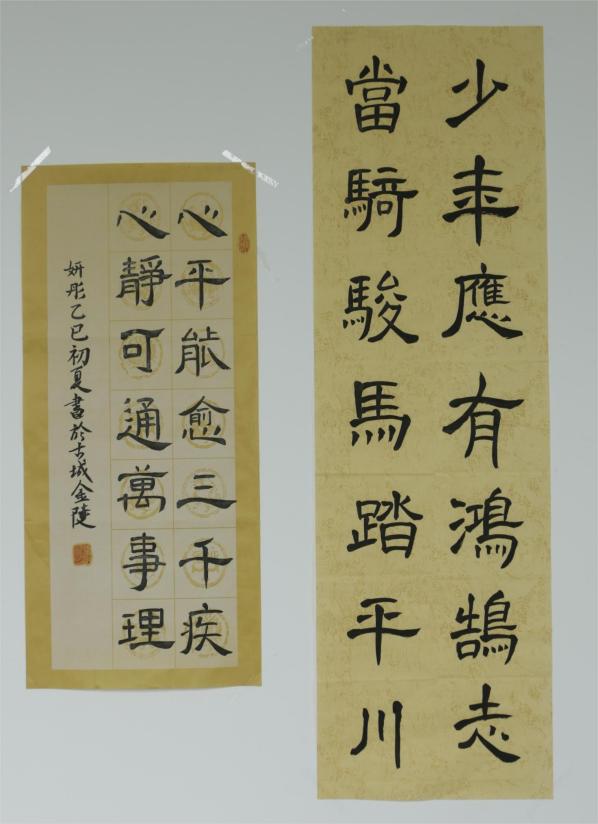 少年應有鴻鵠志
當騎駿馬踏平川
心平能愈三千疾
心靜可通萬事理
妍彤乙巳初夏書於古城金陵